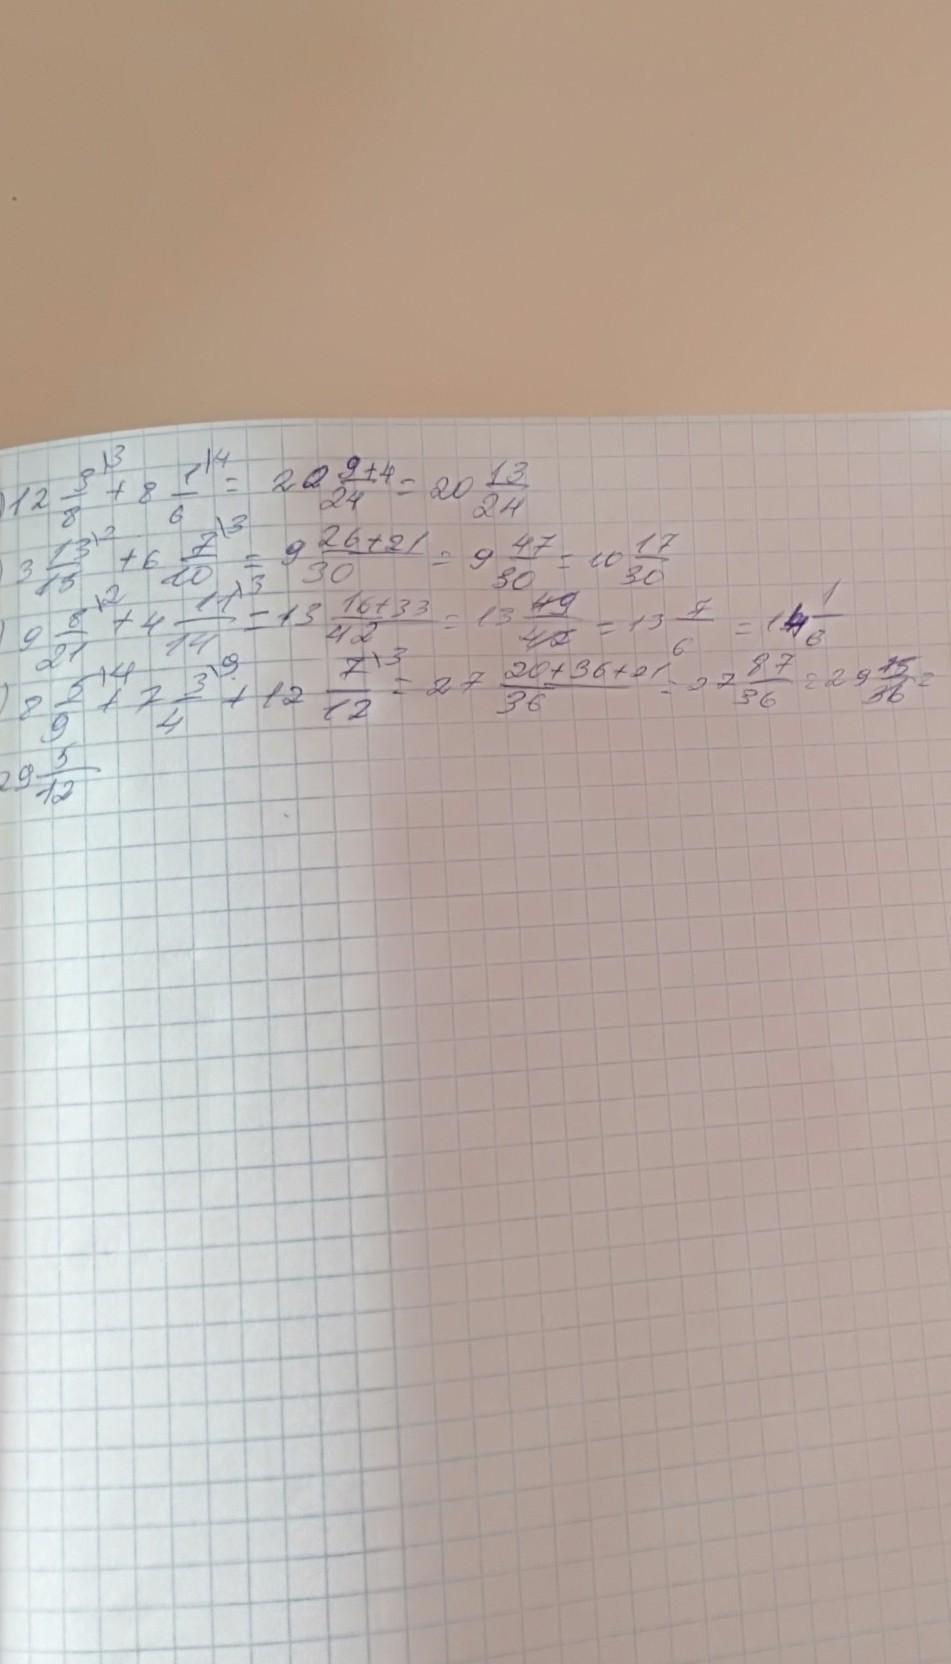 ) 12 3/8 \3 + 8 1/6 \4 = 20 9+4/24 = 20 13/24
) 3 13/15 \2 + 6 7/10 \3 = 9 26+21/30 = 9 47/30 = 10 17/30
) 9 8/21 \2 + 4 11/14 \3 = 13 16+33/42 = 13 49/42 = 13 7/6 = 14 1/6
) 8 5/9 \4 + 7 3/4 \9 + 12 7/12 \3 = 27 20+36+21/36 = 27 87/36 = 29 15/36 =
29 5/12